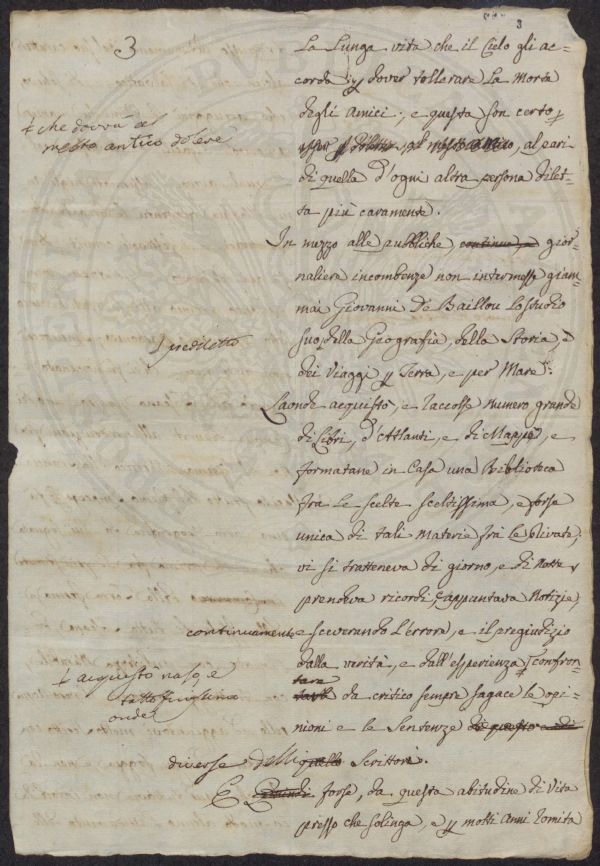 3
3
La Lunga vita che il Cielo gli ac=
corda, p dover tollerare La Morte
degli Amici; e questa son certo
+ che dovrà al
nostro antico dolere
al pari
di quella d'ogni altra persona dilet=
ta più caramente.
In mezzo alle pubbliche, continue, e gior=
naliere incombenze non intermesse giam=
mai Giovanni De Baillou Lo studio
suo, della Geografia, della Storia, e
prediletto
dei Viaggi p Terra, e per Mare:
Laonde acquistò, e raccolse numero grande
di Libri, d'Atlanti, e di Mappe, e
formatane in Casa una Biblioteca
fra Le scelte sceltissima, e forse
unica di tali Materie frà Le Private,
vi si tratteneva di giorno, e di Notte
prendeva ricordi, e appuntava Notizie,
continuamente sceverando L'errore, e il pregiudizio
dalla verità, e dall'esperienza, + confron=
tare
+ acquistò naso, e
tatto finissimo
onde
da critico sempre sagace le opi=
nioni e le Sentenze di questo e di
diverse delli quello Scrittori.
E Quindi forse, da questa abitudine di Vita
presso che solinga, e p molti Anni romita